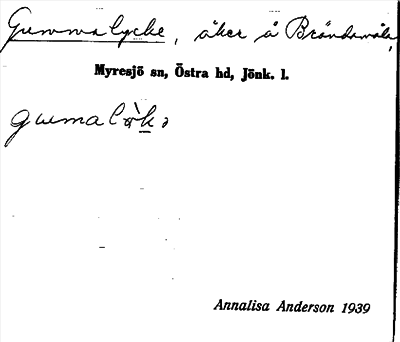 Gummalycke, åker å Brändamåla,
Myresjö sn, Östra hd, Jönk. l.
Annalisa Anderson 1939